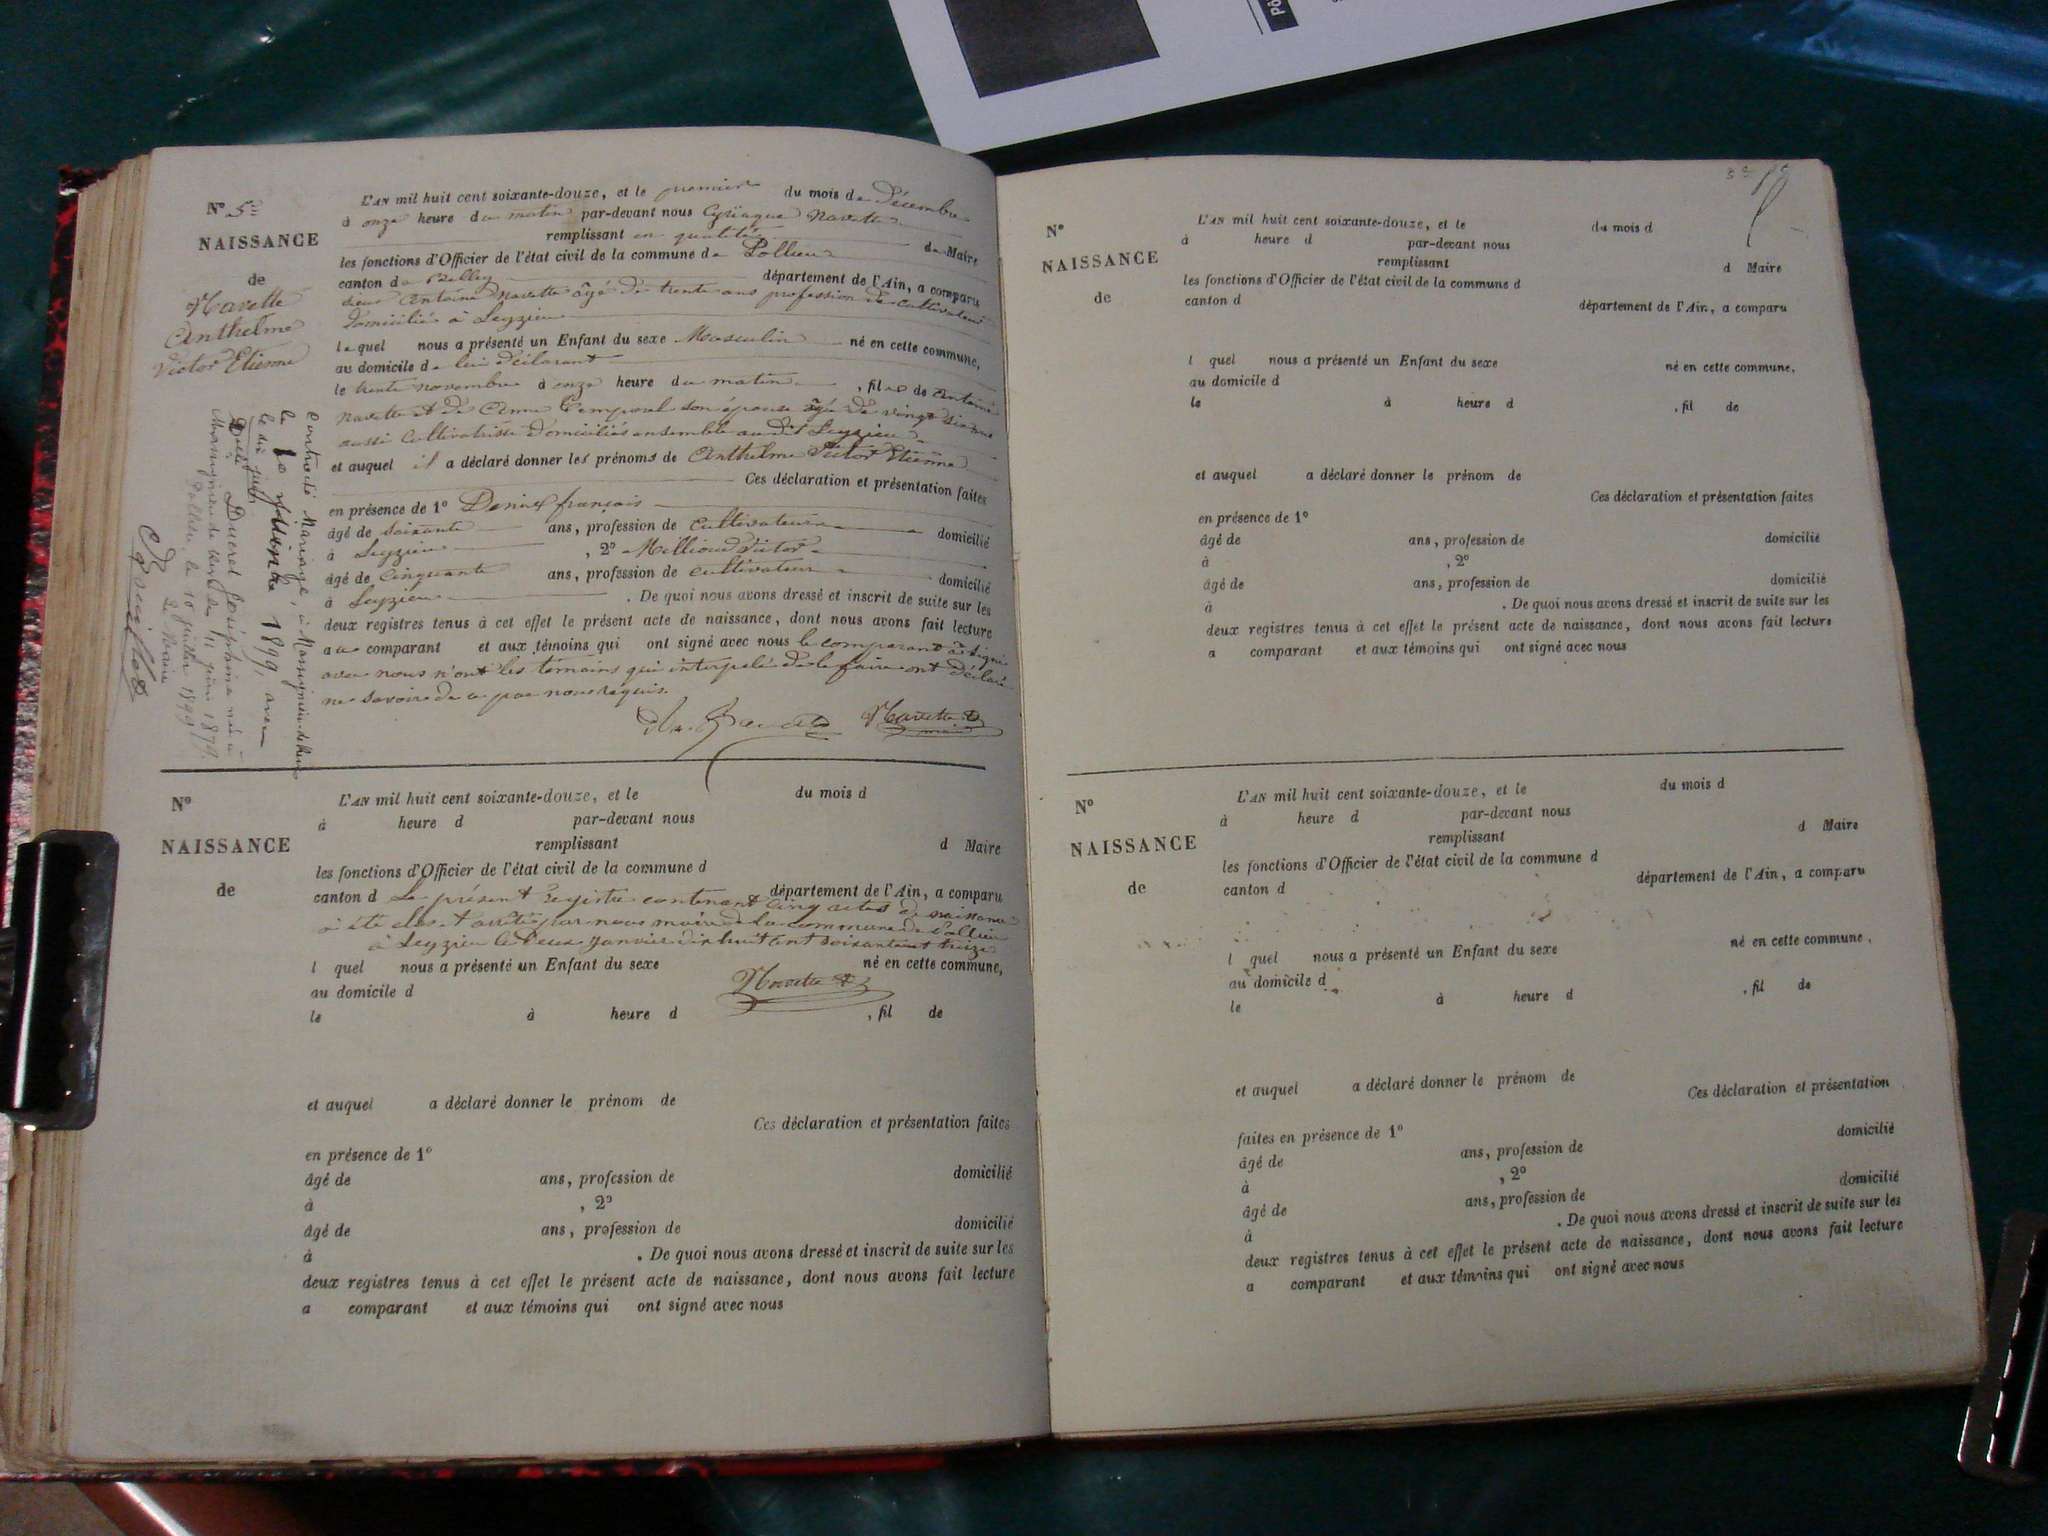 N° 5
NAISSANCE
de
Navette
Anthelme
Victor Etienne
L'AN mil huit cent soixante-douze, et le premier du mois de Décembre
à onze heure du matin par-devant nous Cyriaque Navette
remplissant en qualité de Maire
les fonctions d'Officier de l'état civil de la commune de Pollieu
canton de Belley département de l'Ain, a comparu
sieur Antoine Navette âgé de trente ans profession de cultivateur
domicilié à Leyzieu
lequel nous a présenté un Enfant du sexe Masculin né en cette commune,
au domicile de lui déclarant
le trente novembre à onze heure du matin, fils de Antoine
Navette et de Anne Temporal son épouse âgée de vingt six ans
aussi cultivatrice domiciliés ensemble au dit Leyzieu
et auquel il a déclaré donner les prénoms de Anthelme Victor Etienne
Ces déclaration et présentation faites
en présence de 1° françois
âgé de soixante ans, profession de cultivateur domicilié
à Leyzieu, 2° Millioud Victor
âgé de cinquante ans, profession de cultivateur domicilié
à Leyzieu. De quoi nous avons dressé et inscrit de suite sur les
deux registres tenus à cet effet le présent acte de naissance, dont nous avons fait lecture
au comparant et aux témoins qui ont signé avec nous le comparant a signé
avec nous n'ont les témoins qui interpelé de le faire ont déclaré
ne savoir de ce par nous requis.
Navette
maire
Contracté Mariage, à Massignieu-de-Rives
le 10 1899, avec
Josephine née à
Massignieu de Rives le 11 juin 1879.
Pollieu, le 10 juillet 1899
Le Maire
N°
NAISSANCE
de
L'AN mil huit cent soixante-douze, et le du mois d
à heure d par-devant nous
remplissant d Maire
les fonctions d'Officier de l'état civil de la commune d
canton d département de l'Ain, a comparu
Le présent registre contenant cinq actes de naissance
a été clos et arrêté par nous maire de la commune de Pollieu
à Leyzieu le deux janvier dix huit cent soixante et treize
l quel nous a présenté un Enfant du sexe né en cette commune,
Navette
au domicile d
le à heure d , fil de
et auquel a déclaré donner le prénom de
Ces déclaration et présentation faites
en présence de 1°
âgé de ans, profession de domicilié
à , 2°
âgé de ans, profession de domicilié
à . De quoi nous avons dressé et inscrit de suite sur les
deux registres tenus à cet effet le présent acte de naissance, dont nous avons fait lecture
a comparant et aux témoins qui ont signé avec nous
N°
NAISSANCE
de
L'AN mil huit cent soixante-douze, et le du mois d
à heure d par-devant nous
remplissant d Maire
les fonctions d'Officier de l'état civil de la commune d
canton d département de l'Ain, a comparu
l quel nous a présenté un Enfant du sexe né en cette commune,
au domicile d
le à heure d , fil de
et auquel a déclaré donner le prénom de
Ces déclaration et présentation faites
en présence de 1°
âgé de ans, profession de domicilié
à , 2°
âgé de ans, profession de domicilié
à . De quoi nous avons dressé et inscrit de suite sur les
deux registres tenus à cet effet le présent acte de naissance, dont nous avons fait lecture
a comparant et aux témoins qui ont signé avec nous
N°
NAISSANCE
de
L'AN mil huit cent soixante-douze, et le du mois d
à heure d par-devant nous
remplissant d Maire
les fonctions d'Officier de l'état civil de la commune d
canton d département de l'Ain, a comparu
l quel nous a présenté un Enfant du sexe né en cette commune,
au domicile d
le à heure d , fil de
et auquel a déclaré donner le prénom de
Ces déclaration et présentation
faites en présence de 1°
âgé de ans, profession de domicilié
à , 2°
âgé de ans, profession de domicilié
à . De quoi nous avons dressé et inscrit de suite sur les
deux registres tenus à cet effet le présent acte de naissance, dont nous avons fait lecture
a comparant et aux témoins qui ont signé avec nous